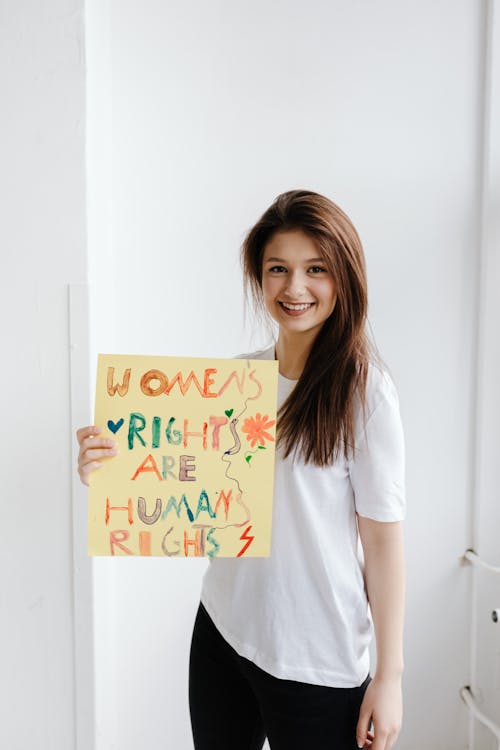 WOMEN'S
RIGHTS
ARE
HUMAN'S
RIGHTS